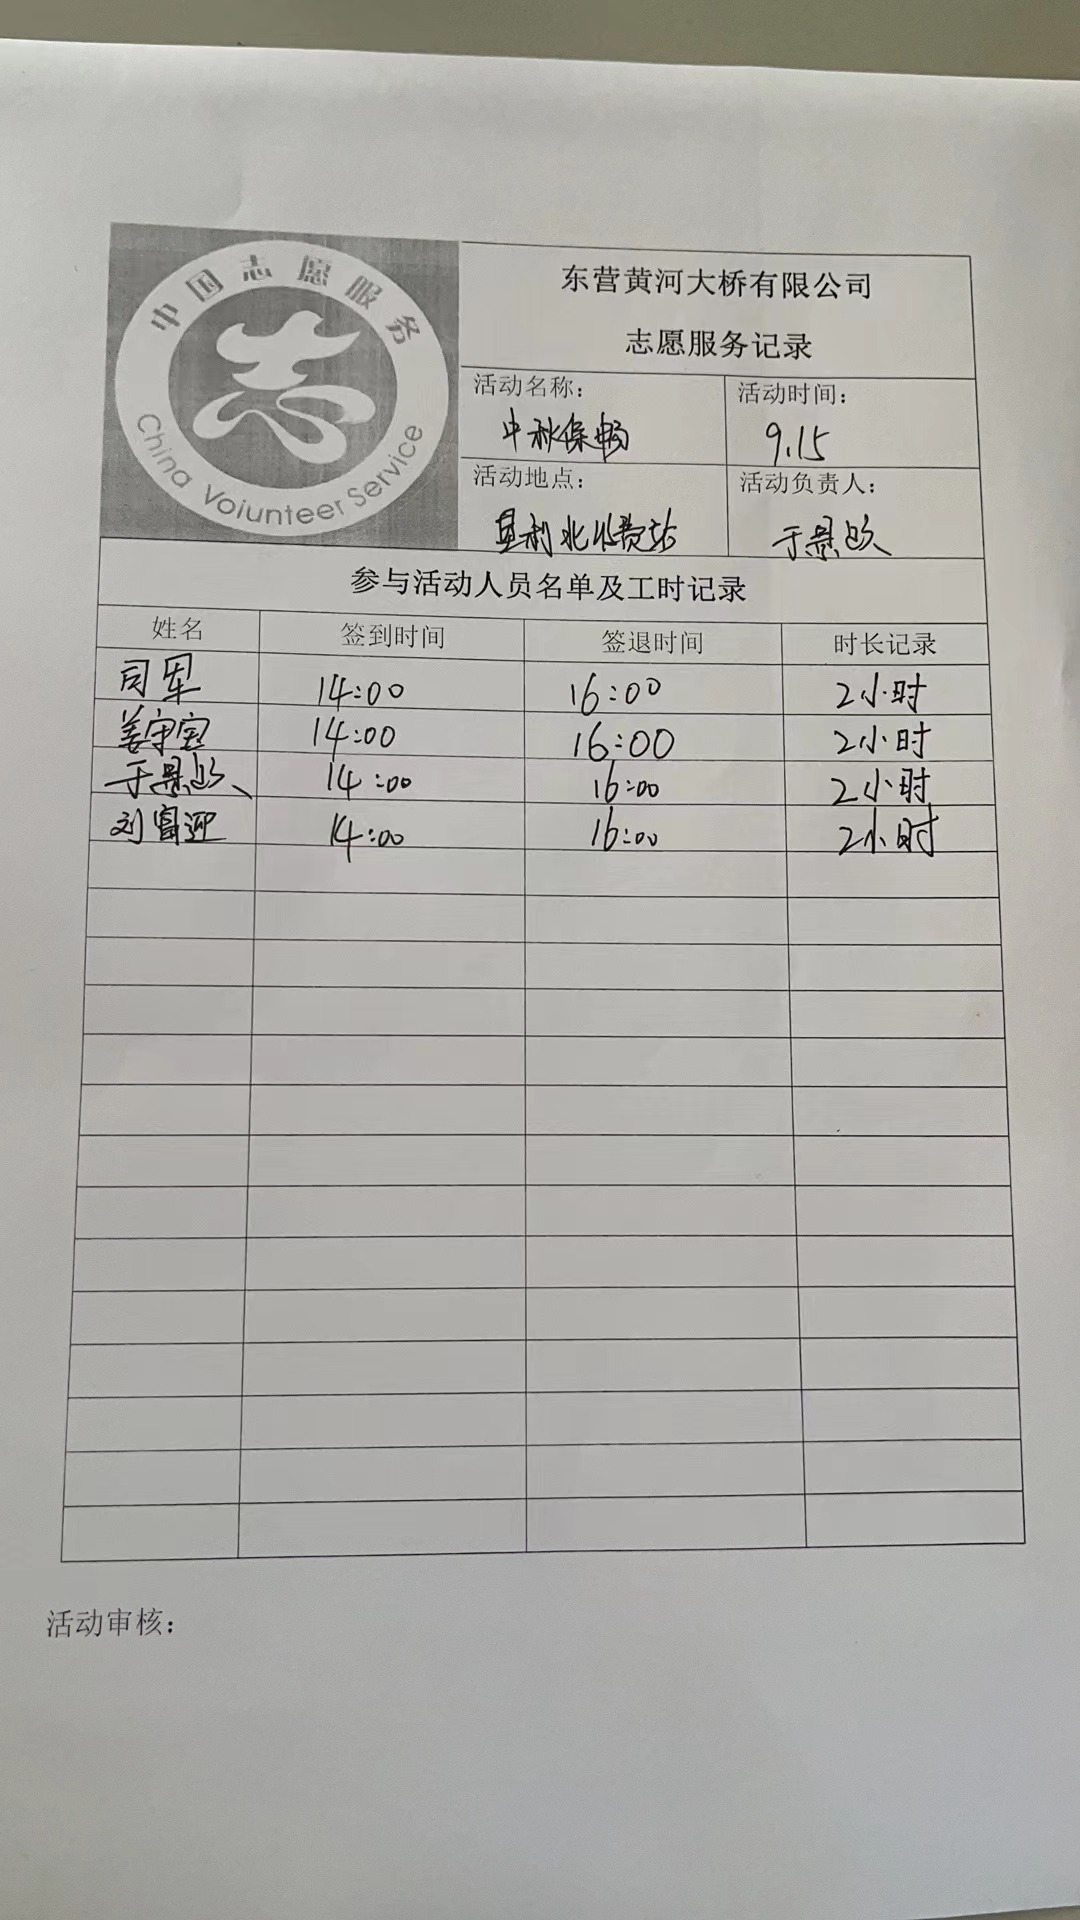 中国志愿服务
China Voiunteer Service
东营黄河大桥有限公司
志愿服务记录
活动名称：
中秋保畅
活动时间：
9.15
活动地点：
垦利北收费站
活动负责人：
于景
参与活动人员名单及工时记录
姓名 签到时间 签退时间 时长记录
司军 14:00 16:00 2小时
姜守宝 14:00 16:00 2小时
于景 14:00 16:00 2小时
刘富迎 14:00 16:00 2小时
活动审核：